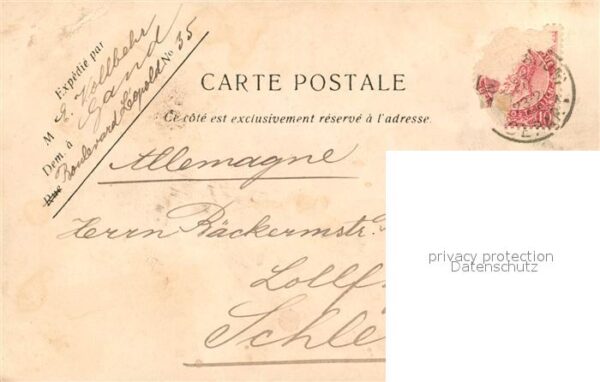 Expédie par
M E. Vollbehr
Dem. à Gand
Rue Boulevard Léopold No 35
CARTE POSTALE
Ce côté est exclusivement réservé à l'adresse.
Allemagne
Herrn Bäckermstr.
Lollf
Schle
privacy protection
Datenschutz